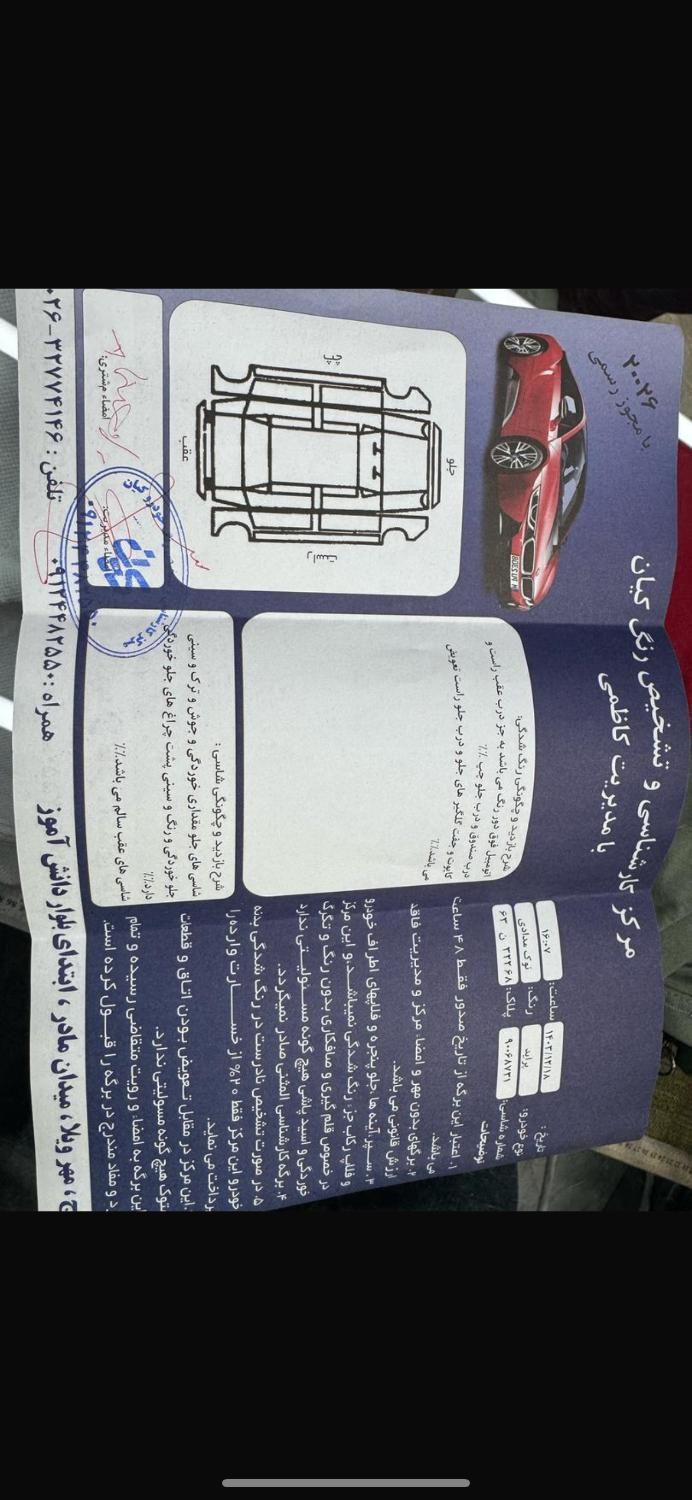 مرکز کارشناسی و تشخیص رنگ کیان
با مدیریت کاظمی
۲۰۰۲۶
با مجوز رسمی
تاریخ: ۱۴۰۳/۱۲/۱۸ ساعت: ۱۶:۰۷
نوع خودرو: پراید رنگ: نوک مدادی
شماره شاسی: ۹۰۰۶۸۷۳۱ پلاک: ۶۸ ۳۲۲ ن ۶۳
توضیحات
۱. اعتبار این برگه از تاریخ صدور فقط ۴۸ ساعت
می باشد.
۲. برگهای بدون مهر و امضاء مرکز و مدیریت فاقد
ارزش قانونی می باشد.
۳. سپر، آینه ها، جلو پنجره و قلابهای اطراف خودرو
و قلاب رکاب جزء رنگ شدگی نمیباشد و این مرکز
در خصوص قلم گیری و صافکاری بدون رنگ و تگرگ
خوردگی و اسید پاشی هیچ گونه مسئولیتی ندارد
۴. برگه کارشناسی المثنی صادر نمیگردد.
۵. در صورت تشخیص نادرست در رنگ شدگی بدنه
خودرو این مرکز فقط ۲۰% از خسارت وارده را
پرداخت می نماید.
این مرکز در مقابل تعویض بودن اتاق و قطعات
ستوک هیچ گونه مسولیتی ندارد.
این برگه به امضاء و رویت متقاضی رسیده و تمام
و مفاد مندرج در برگه را قبول کرده است.
شرح بازدید و چگونگی رنگ شدگی:
اتومبیل فوق دور رنگ می باشد به جز درب عقب راست و
درب صندوق و درب جلو چپ ٪٪
کاپوت و جفت گلگیر های جلو و درب جلو راست تعویض
می باشد.٪٪
شرح بازدید و چگونگی شاسی:
شاسی های جلو مقداری خوردگی و جوش و ترک و سینی
جلو خوردگی و رنگ و سینی پشت چراغ های جلو خوردگی
دارد.٪٪
شاسی های عقب سالم می باشد.٪٪
جلو
چپ
راست
عقب
امضاء مشتری:
امضاء مدیریت:
تلفن: ۳۲۷۷۴۱۴۶-۰۲۶ همراه: ۰۹۱۲۴۴۸۲۵۵۰
مهر ویلا، میدان مادر، ابتدای بلوار دانش آموز